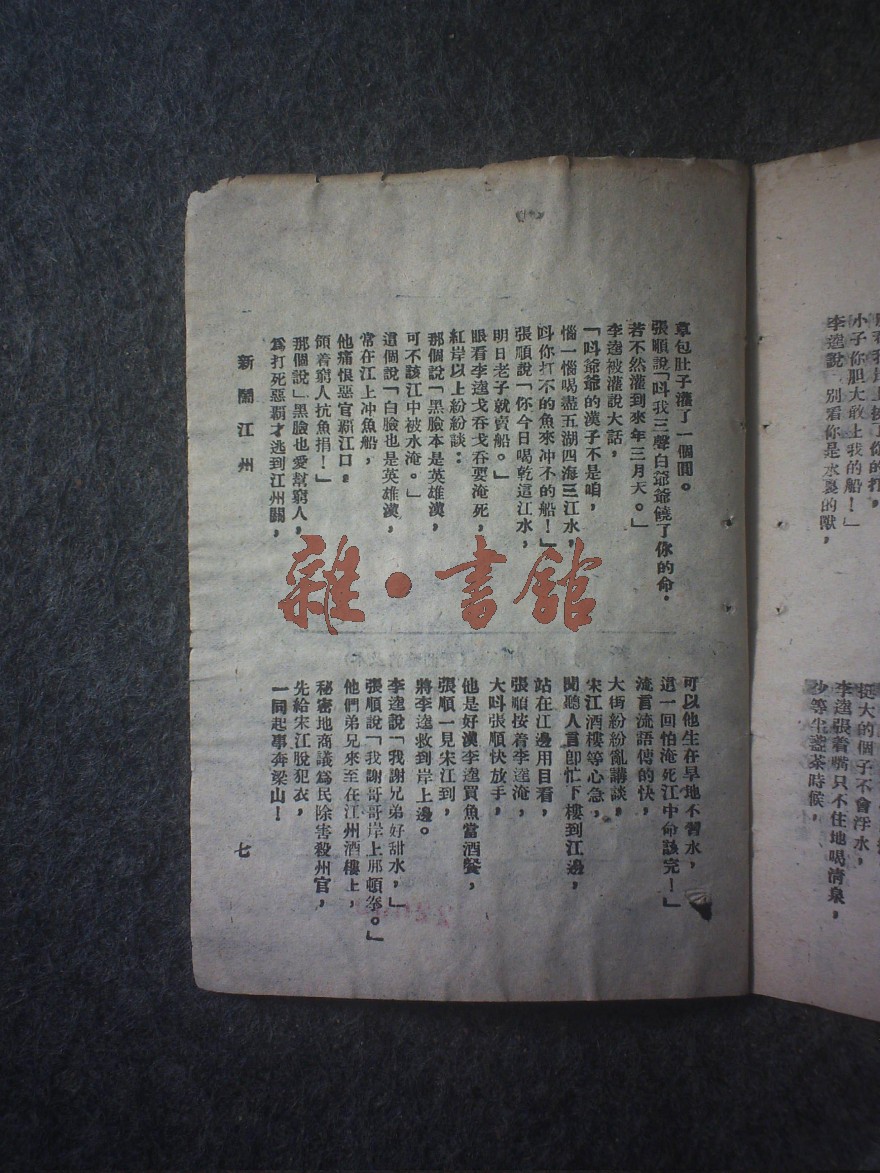 小子你胆大敢上我的船！」
李逵說「別看你是水裏的獸，
挺大的個子不會浮水，
李逵張着嘴只不住地喝清泉，
少等尘盞茶時候，
草包肚子灌了一個圓。
張順說「呌我三聲白爺爺饒了你的命．
若不然灌到來年三月天。」
李逵被灌說大話，
「呌爺爺的漢子不是咱，
惱一惱喝盡五湖四海三江水，
呌你打不的魚來冲不的船！」
張順說「你今日喝乾這江水，
明日老子就賣船。」
眼看李逵戈吞戈吞要淹死，
紅岸以上紛紛談：
那個說「黑臉本是英雄漢，
可不該江中被水淹。」
這個說「白臉也是英雄漢，
常在江上冲魚船，
他痛恨惡官覇江口。
領着窮人抗魚捐！」
那個說」黑臉也愛幫窮人，
爲打死惡覇才逃到江州關，
可以他生在旱地不習水，
這一回怕淹死江中命該完！」
流言流語傳的快，
大街紛紛亂講談，
宋江酒樓等心急，
聞聽人言卽忙下樓到江邊，
站在江邊用目看，
張順按着李逵淹，
大呌張順快放手，
他是好漢李逵買魚當酒餐，
張順一見宋江到，
將李逵救到岸上邊。
李逵說「我謝兄弟好甜水，」
張順說「我謝哥哥岸上那頓拳。」
他們弟兄來至在江州酒樓上，
秘密地商議爲民除害殺州官，
先給宋江脫犯衣，
一同起事奔梁山！
新鬧江州
七
雜·書館